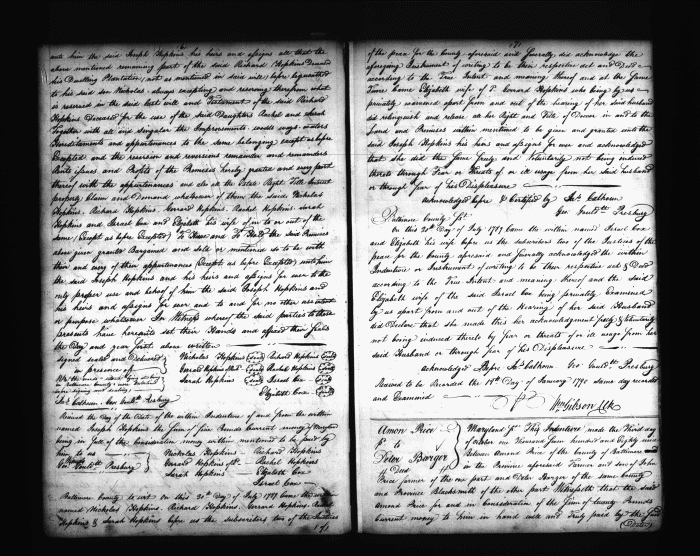 unto him the said Joseph Hopkins his heirs and assigns all that the
above mentioned remaining part of the said Richard Hopkins Deceased
his Dwelling Plantation, not as mentioned in said will, before bequeathed
to his said son Nicholas always excepting and reserving therefrom what
is reserved in the said last will and Testament of the said Richard
Hopkins Deceased for the use of the said Daughters Rachel and Sarah
Together with all and singular the Improvements woods ways waters
Hereditaments and appurtenances to the same belonging except as before
Excepted and the reversion and reversions remainder and remainders
Rents issues and Profits of the Premises hereby granted and every part
thereof with the appurtenances and also all the Estate Right Title Interest
property Claim and Demand whatsoever of them the said Nicholas
Hopkins, Richard Hopkins, Gerrard Hopkins, Rachel Hopkins, Sarah
Hopkins and Israel Cox and Elizabeth his wife of in to or out of the
same (Except as before Excepted) To Have and To Hold the said Premises
above given granted Bargained and sold or mentioned so to be with
their and every of their appurtenances (Except as before Excepted) unto him
the said Joseph Hopkins and his heirs and assigns for ever to the
only proper use and behoof of him the said Joseph Hopkins and
his heirs and assigns for ever and to and for no other use intent
or purpose whatsoever In Witness whereof the said parties to these
presents have hereunto set their Hands and affixed their seals
the Day and year first above written
signed sealed and Delivered
in presence of
Jas. Calhoun Geo. Gouldsh. Presbury
Nicholas Hopkins (seal) Richard Hopkins (seal)
Gerrard Hopkins (seal) Rachel Hopkins (seal)
Sarah Hopkins (seal) Israel Cox (seal)
Elizabeth Cox (seal)
Received the Day of the Date of the within Indenture of and from the within
named Joseph Hopkins the sum of five Pounds Current money of Maryland
being in full of the Consideration money within mentioned to be paid by
him to us
Geo. Gouldsh. Presbury
Nicholas Hopkins Richard Hopkins
Gerrard Hopkins Rachel Hopkins
Sarah Hopkins Elizabeth Cox
Israel Cox
Baltimore County to wit on this 20th Day of July 1789 Came the within
named Nicholas Hopkins, Richard Hopkins, Gerrard Hopkins, Rachel
Hopkins & Sarah Hopkins before us the subscribers two of the Justices
of the peace for the County aforesaid and severally did acknowledge the
aforegoing Instrument of writing to be their respective act and Deed
according to the True Intent and meaning thereof and at the same
Time Came Elizabeth wife of Gerrard Hopkins who being by us
privately examined apart from and out of the hearing of her said husband
did relinquish and release all her Right and Title of Dower in and to the
Land and Premises within mentioned to be given and granted unto the
said Joseph Hopkins his heirs and assigns for ever and acknowledged
that she did the same freely and Voluntarily not being induced
thereto through Fear or threats of or ill usage from her said husband
or through fear of his Displeasure
acknowledged before & Certified by Jas. Calhoun
Geo. Gouldsh. Presbury
Baltimore County Sst.
On this 20th Day of July 1789 Came the within named Israel Cox
and Elizabeth his wife before us the subscribers two of the Justices of the
peace for the County aforesaid and severally acknowledged the within
Indenture or Instrument of writing to be their respective act & Deed
according to the True Intent and meaning thereof and the said
Elizabeth wife of the said Israel Cox being privately Examined
by us apart from and out of the Hearing of her said Husband
did Declare that she made this her acknowledgment freely & Voluntarily
not being induced thereto by fear or threats of or ill usage from her
said Husband or through fear of his Displeasure
acknowledged Before Jas. Calhoun Geo. Gouldsh. Presbury
Received to be Recorded the 18th Day of January 1790 same day recorded
and Examined
Wm. Gibson Clk
Amon Price
to
Peter Barger
Deed
Maryland Sst. This Indenture made the Third day of
one Thousand seven hundred and Eighty nine
Between Amond Price of the County of Baltimore
in the Province aforesaid Farmer and son of John
Price farmer of the one part and Peter Barger of the same County
and Province Blacksmith of the other part Witnesseth that the said
Amond Price for and in Consideration of the sum of twenty Pounds
Current money to him in hand well and Truly paid by the said
(Peter)